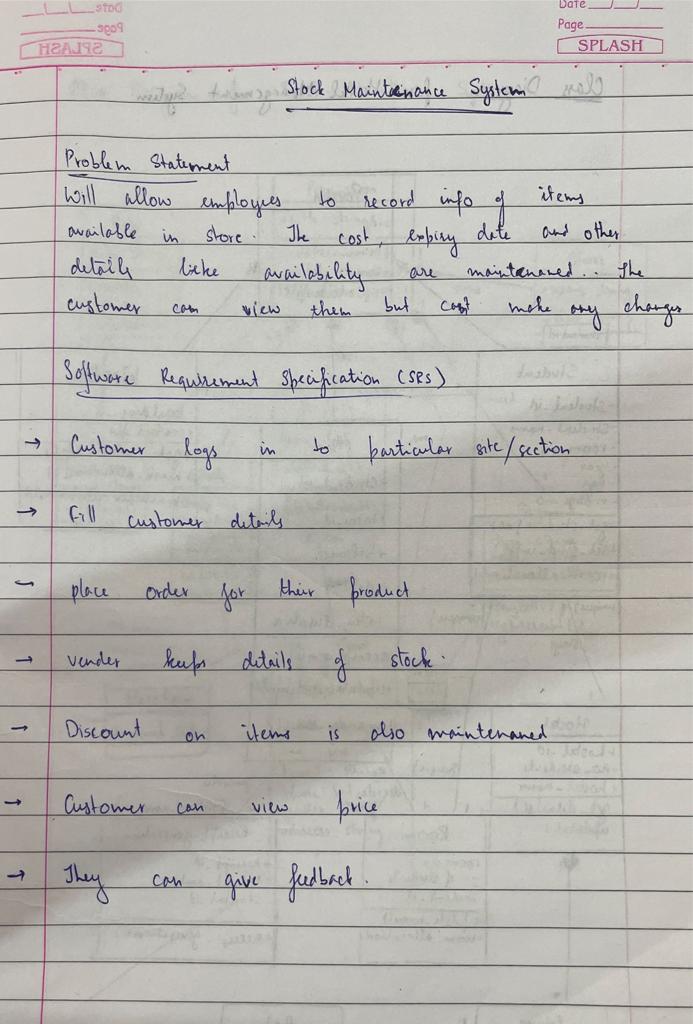 Date / /
Page
SPLASH
Stock Maintenance System
Problem Statement
Will allow employees to record info of items
available in store. The cost, expiry date and other
details like availability are maintenaned.. The
customer can view them but can't make any changes
Software Requirement Specification (SRS)
→ Customer logs in to particular site/section
→ Fill customer details
– place order for their product
→ vender keeps details of stock.
→ Discount on items is also maintenaned
→ Customer can view price
→ They can give feedback.